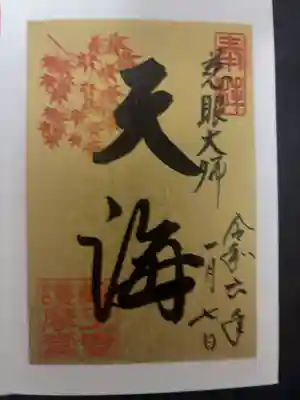 奉拝
慈眼大師
天海
令和六年
一月七日